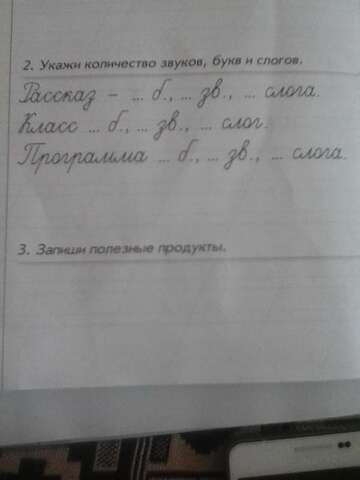 2. Укажи количество звуков, букв и слогов.
Рассказ – ... б., ... зв., ... слога.
Класс ... б., ... зв., ... слог.
Программа ... б., ... зв., ... слога.
3. Запиши полезные продукты.